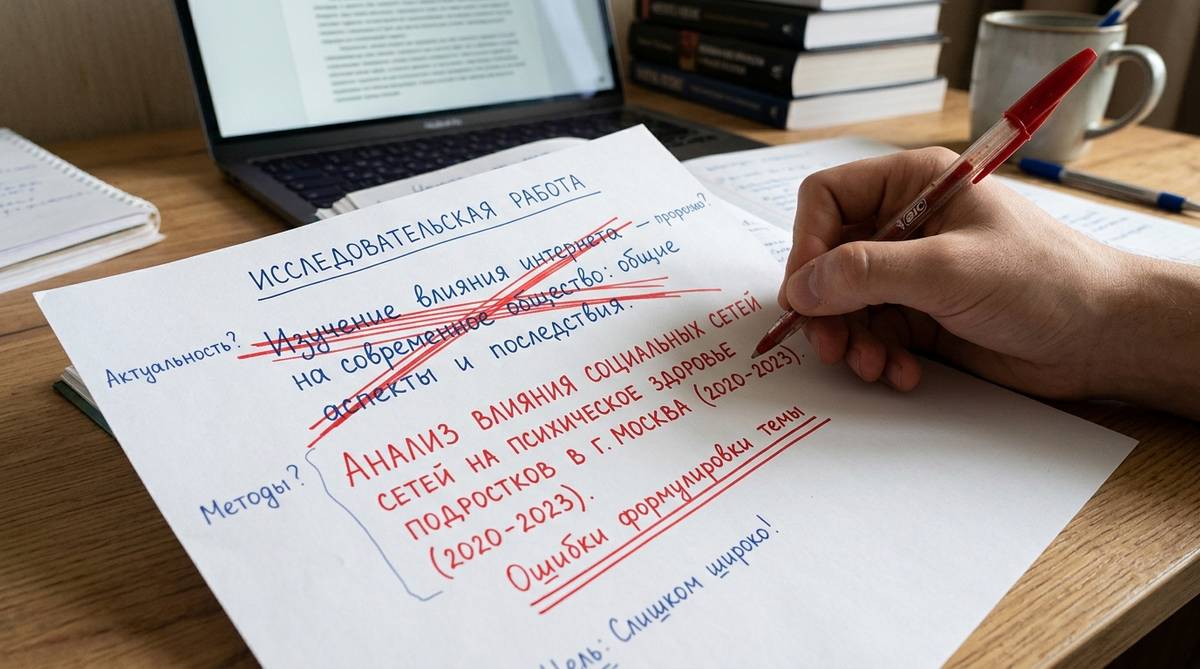 ИССЛЕДОВАТЕЛЬСКАЯ РАБОТА
Изучение влияния интернета –
на современное общество: общие
аспекты и последствия.
Актуальность?
АНАЛИЗ ВЛИЯНИЯ СОЦИАЛЬНЫХ СЕТЕЙ
СЕТЕЙ НА ПСИХИЧЕСКОЕ ЗДОРОВЬЕ
ПОДРОСТКОВ В Г. МОСКВА (2020-2023).
(2020-2023).
Методы?
Ошибки формулировки темы
Цель: Слишком широко!
BIC